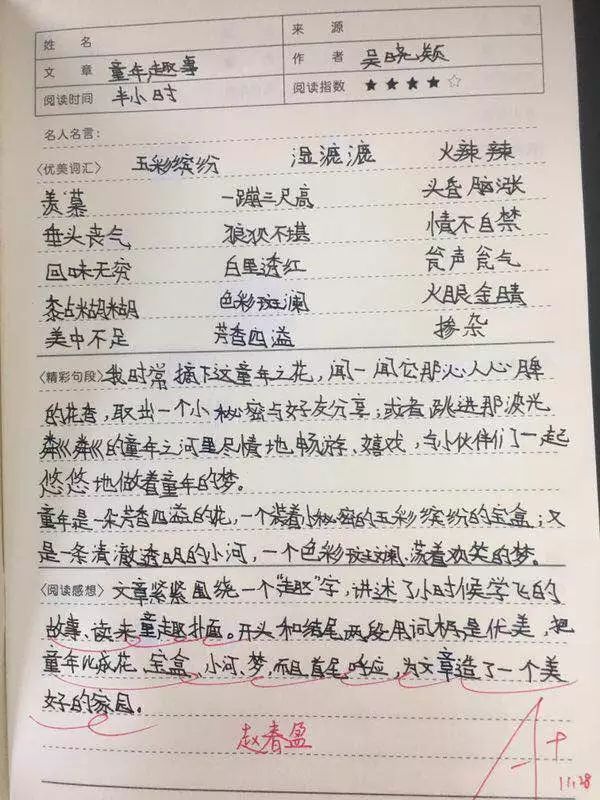 姓名 来源
文章 童年趣事 作者 吴晓颖
阅读时间 半小时 阅读指数 ★★★★☆
名人名言:
〈优美词汇〉 五彩缤纷 湿漉漉 火辣辣
羡慕 一蹦三尺高 头昏脑涨
垂头丧气 狼狈不堪 情不自禁
回味无穷 白里透红 瓮声瓮气
黍占糊糊 色彩斑斓 火眼金睛
美中不足 芳香四溢 掺杂
〈精彩句段〉我时常摘下这童年之花,闻一闻它那沁人心脾
的花香,取出一个小秘密与好友分享;或者跳进那波光
粼粼的童年之河里尽情地畅游、嬉戏,与小伙伴们一起
悠悠地做着童年的梦。
童年是一朵芳香四溢的花,一个装着小秘密的五彩缤纷的宝盒;又
是一条清澈透明的小河,一个色彩斑斓、荡着欢笑的梦。
〈阅读感想〉文章紧紧围绕一个“趣”字,讲述了小时候学飞的
故事、读来童趣扑面。开头和结尾两段用词极是优美,把
童年比成花、宝盒、小河、梦,而且首尾呼应,为文章造了一个美
好的家园。
赵春盈
A+
11.28